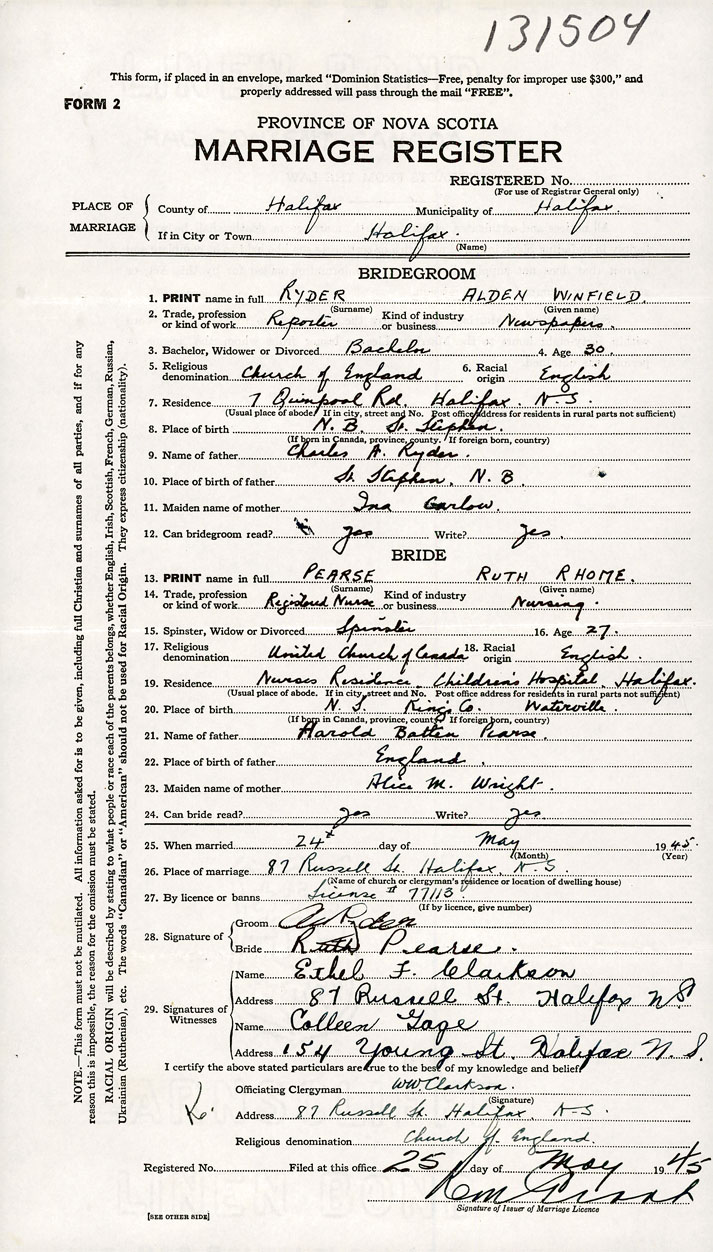 131504
This form, if placed in an envelope, marked “Dominion Statistics—Free, penalty for improper use $300,” and
properly addressed will pass through the mail “FREE”.
FORM 2
PROVINCE OF NOVA SCOTIA
MARRIAGE REGISTER
REGISTERED No.
(For use of Registrar General only)
PLACE OF MARRIAGE
County of Halifax Municipality of Halifax.
If in City or Town Halifax.
(Name)
BRIDEGROOM
1. PRINT name in full RYDER ALDEN WINFIELD.
(Surname) (Given name)
2. Trade, profession or kind of work Reporter Kind of industry or business Newspapers.
3. Bachelor, Widower or Divorced Bachelor 4. Age 30.
5. Religious denomination Church of England 6. Racial origin English
7. Residence 7 Quinpool Rd. Halifax. N-S.
(Usual place of abode. If in city, street and No. Post office address for residents in rural parts not sufficient)
8. Place of birth N.B. St. Stephen.
(If born in Canada, province, county. If foreign born, country)
9. Name of father Charles A. Ryder.
10. Place of birth of father St. Stephen, N.B.
11. Maiden name of mother Ina Garlow.
12. Can bridegroom read? yes Write? yes.
BRIDE
13. PRINT name in full PEARSE RUTH RHOME.
(Surname) (Given name)
14. Trade, profession or kind of work Registered Nurse Kind of industry or business Nursing.
15. Spinster, Widow or Divorced Spinster 16. Age 27.
17. Religious denomination United Church of Canada 18. Racial origin English.
19. Residence Nurses Residence Children's Hospital, Halifax.
(Usual place of abode. If in city, street and No. Post office address for residents in rural parts not sufficient)
20. Place of birth N.S. King's Co. Waterville.
(If born in Canada, province, county. If foreign born, country)
21. Name of father Harold Batten Pearse.
22. Place of birth of father England.
23. Maiden name of mother Alice M. Wright.
24. Can bride read? yes Write? yes.
25. When married 24th day of May 1945.
(Month) (Year)
26. Place of marriage 87 Russell St. Halifax, N-S.
(Name of church or clergyman's residence or location of dwelling house)
27. By licence or banns License # 77113
(If by licence, give number)
28. Signature of
Groom Ryder
Bride Ruth Pearse.
29. Signatures of Witnesses
Name Ethel F. Clarkson
Address 87 Russell St. Halifax N.S
Name Colleen Gage
Address 154 Young St. Halifax N.S.
I certify the above stated particulars are true to the best of my knowledge and belief
Officiating Clergyman WW Clarkson.
(Signature)
Address 87 Russell St. Halifax, N-S.
Religious denomination Church of England.
Registered No. Filed at this office 25 day of May 1945
Signature of Issuer of Marriage Licence
[SEE OTHER SIDE]
NOTE.—This form must not be mutilated. All information asked for is to be given, including full Christian and surnames of all parties, and if for any
reason this is impossible, the reason for the omission must be stated.
RACIAL ORIGIN will be described by stating to what people or race each of the parents belongs, whether English, Irish, Scottish, French, German, Russian,
Ukrainian (Ruthenian), etc. The words “Canadian” or “American” should not be used for Racial Origin. They express citizenship (nationality).